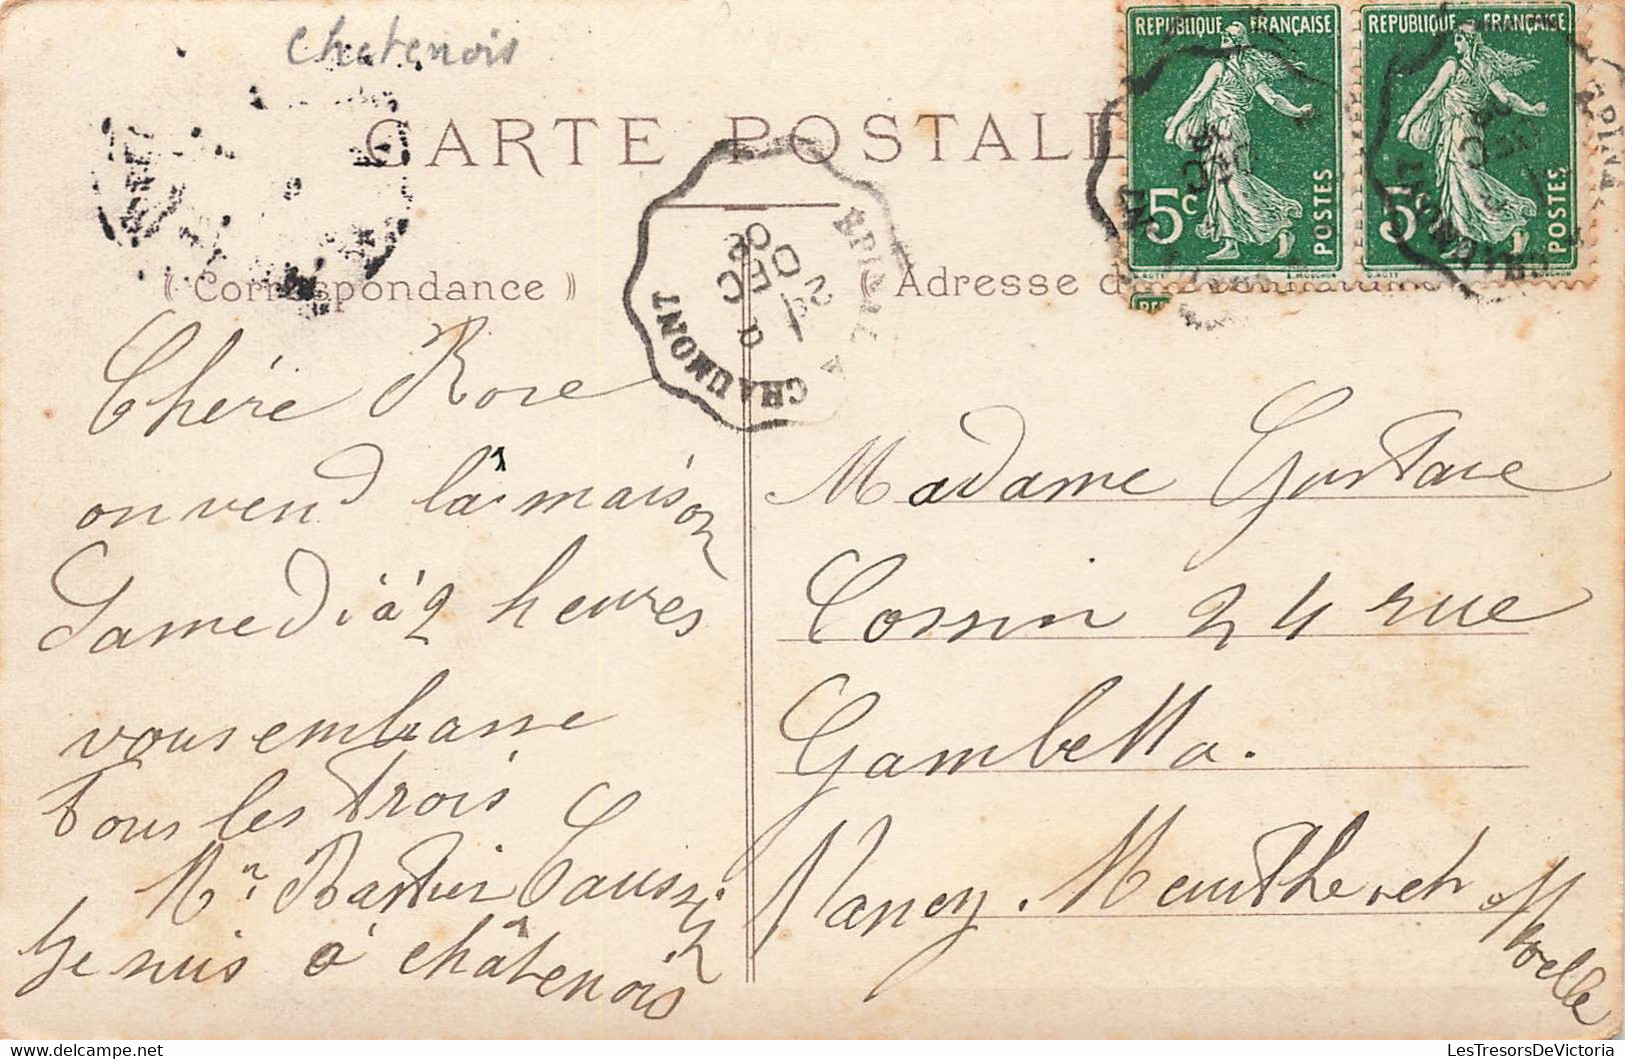 Chatenois
REPUBLIQUE FRANÇAISE
REPUBLIQUE FRANÇAISE
CARTE POSTALE
5c POSTES
5c POSTES
EPINAL A CHAUMONT
2 DEC
08
Correspondance
Adresse du
Chére Rose
on vend lâ maison
Samedi à 2 heures
vous embrasse
tous les trois
Mr Bastien Caussin
Je suis à châtenois
Madame Gustave
Cossin 24 rue
Gambetta.
Nancy. Meurthe et Moselle
LesTresorsDeVictoria